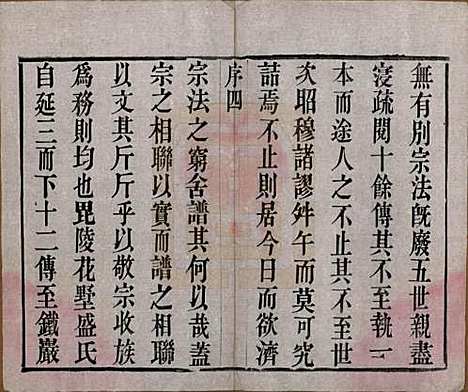 無有別宗法旣廢五世親盡
寖疏閱十餘傳其不至執一
本而途人之不止矣於是世
次昭穆諸謬舛午而莫可究
詰焉不止則居今日而欲濟
序四
宗法之窮舍譜其何以哉蓋
宗之相聯以實而譜之相聯
以文其斤斤乎以敬宗收族
爲務則均也毘陵花墅盛氏
自延三而下十二傳至鐵巖